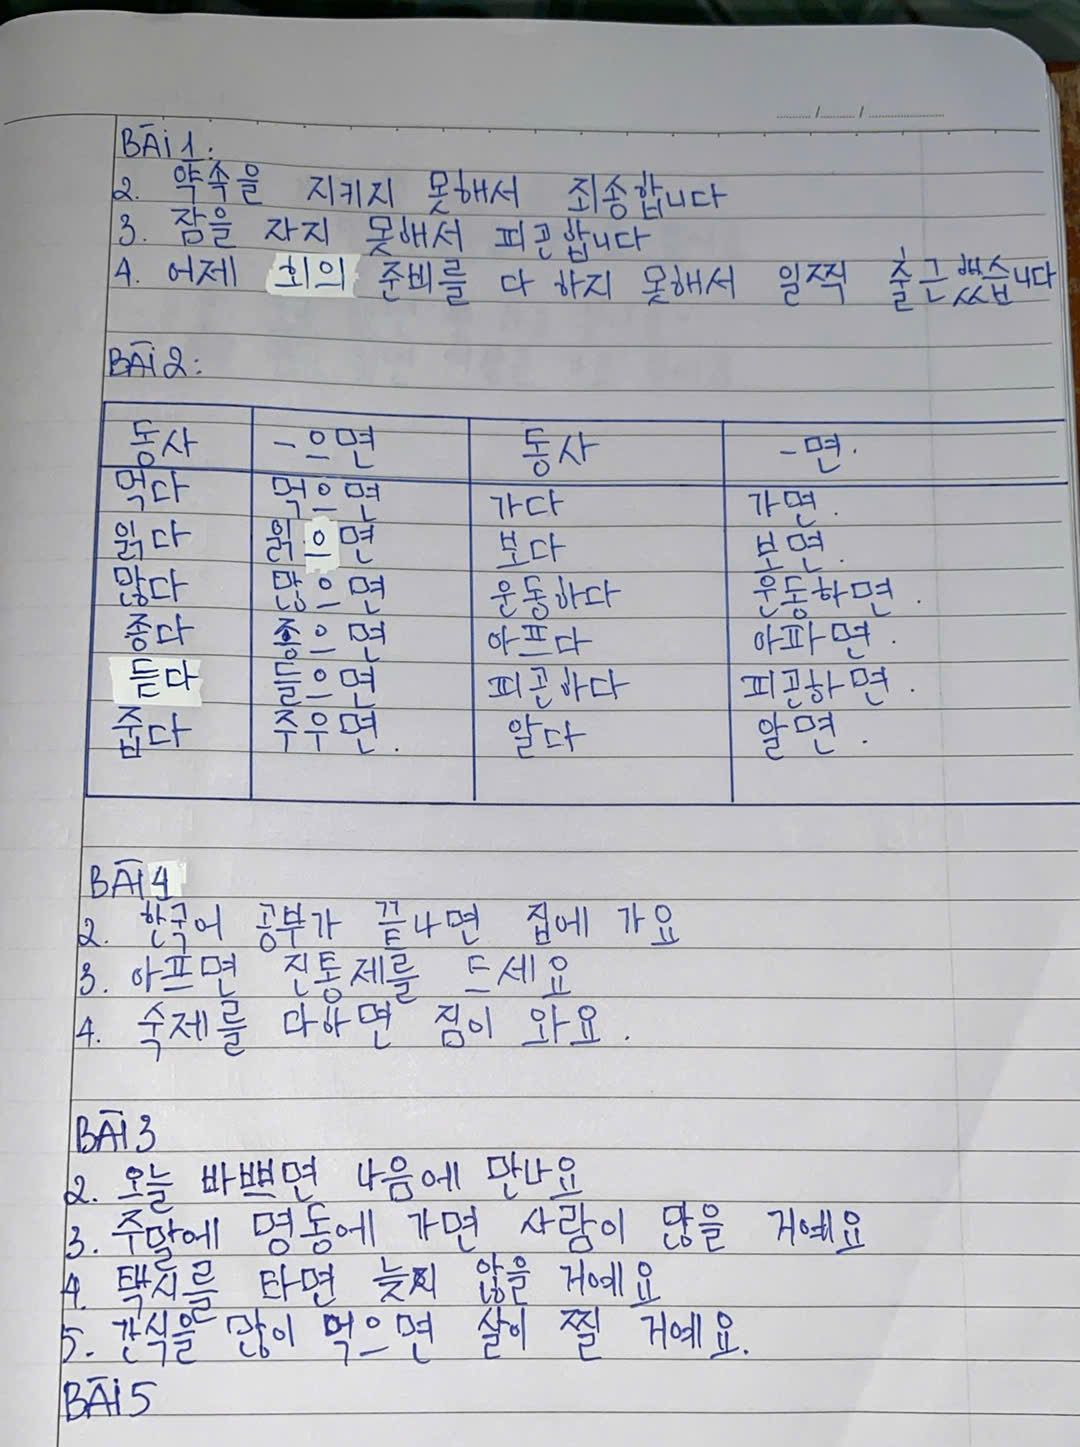 BÀI 1:
2. 약속을 지키지 못해서 죄송합니다
3. 잠을 자지 못해서 피곤합니다
4. 어제 회의 준비를 다 하지 못해서 일찍 출근했습니다
BÀI 2:
동사 -으면 동사 -면.
먹다 먹으면 가다 가면.
읽다 읽으면 보다 보면.
많다 많으면 운동하다 운동하면.
좋다 좋으면 아프다 아파면.
듣다 들으면 피곤하다 피곤하면.
줍다 주우면. 알다 알면.
BÀI 4
2. 한국어 공부가 끝나면 집에 가요
3. 아프면 진통제를 드세요
4. 숙제를 다하면 짐이 와요.
BÀI 3
2. 오늘 바쁘면 나음에 만나요
3. 주말에 명동에 가면 사람이 많을 거예요
4. 택시를 타면 늦지 않을 거예요
5. 간식을 많이 먹으면 살이 찔 거예요.
BÀI 5